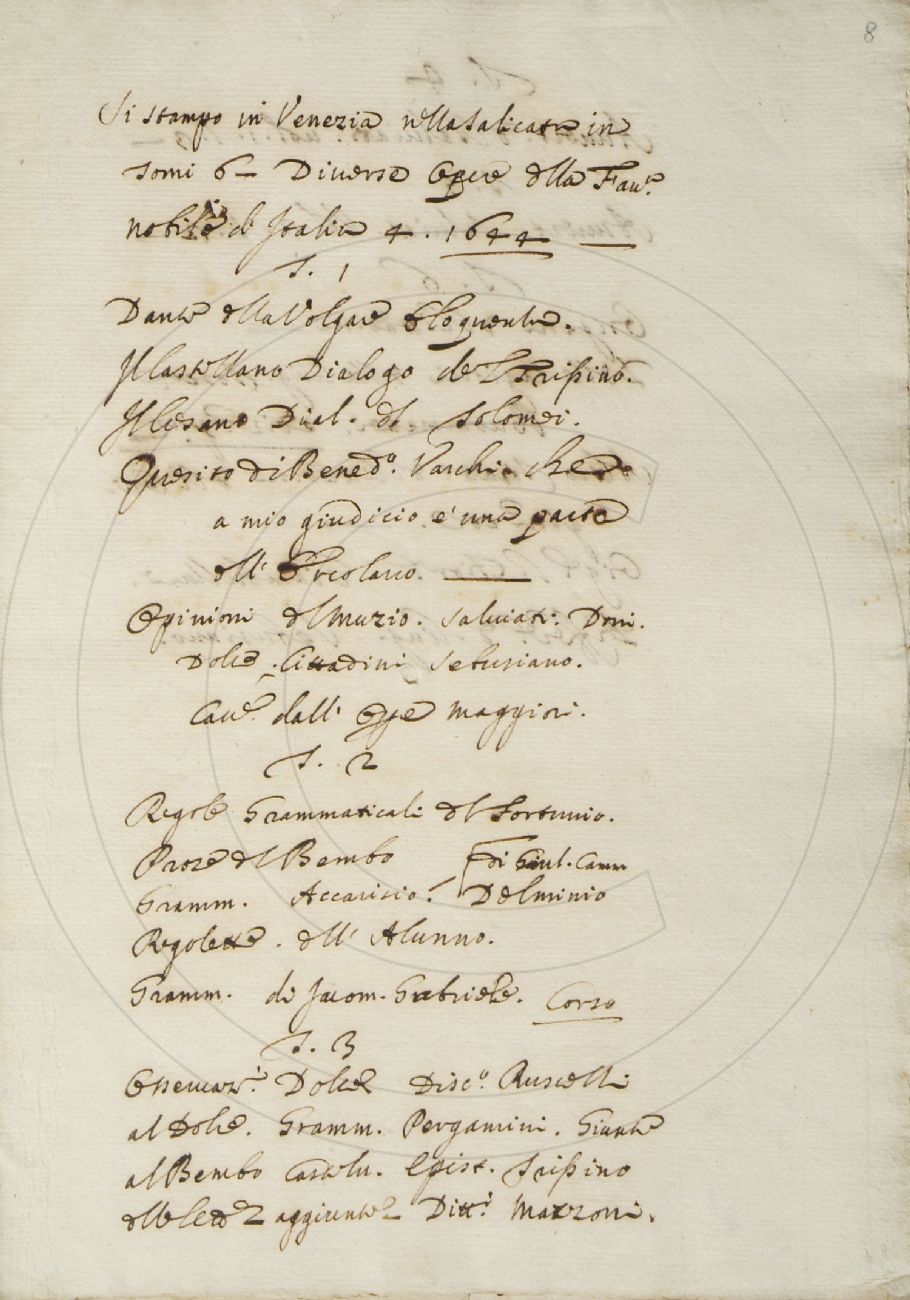 8
Si stampò in Venezia nella Salicata in
tomi 6 – Diverse Opere della Fav.ª
nobile d'Italia 4. 1644 —
T. 1
Dante della Volgare Eloquentia.
Il Castellano Dialogo del Trissino.
Il Cesano Dial. del Tolomei.
Quesito di Bened.º Varchi che
a mio giudicio è una parte
dell' Ercolano. —
Opinioni del Muzio. Salviati. Doni.
Dolce. Cittadini
Cav.e dall' Opere maggiori.
T. 2
Regole Grammaticali del Fortunio.
Prose del Bembo di Giul. Cam
Gramm. Accarisio. Delminio
Regolette. dell' Alunno.
Gramm. di Jacom. Gabriele. Corso
T. 3
Osservaz.i Dolce Disc.º Ruscelli
al Dolce. Gramm. Pergamini. Giunte
al Bembo Castelv. Epist. Trissino
delle lett.e aggiunte Mazzoni.